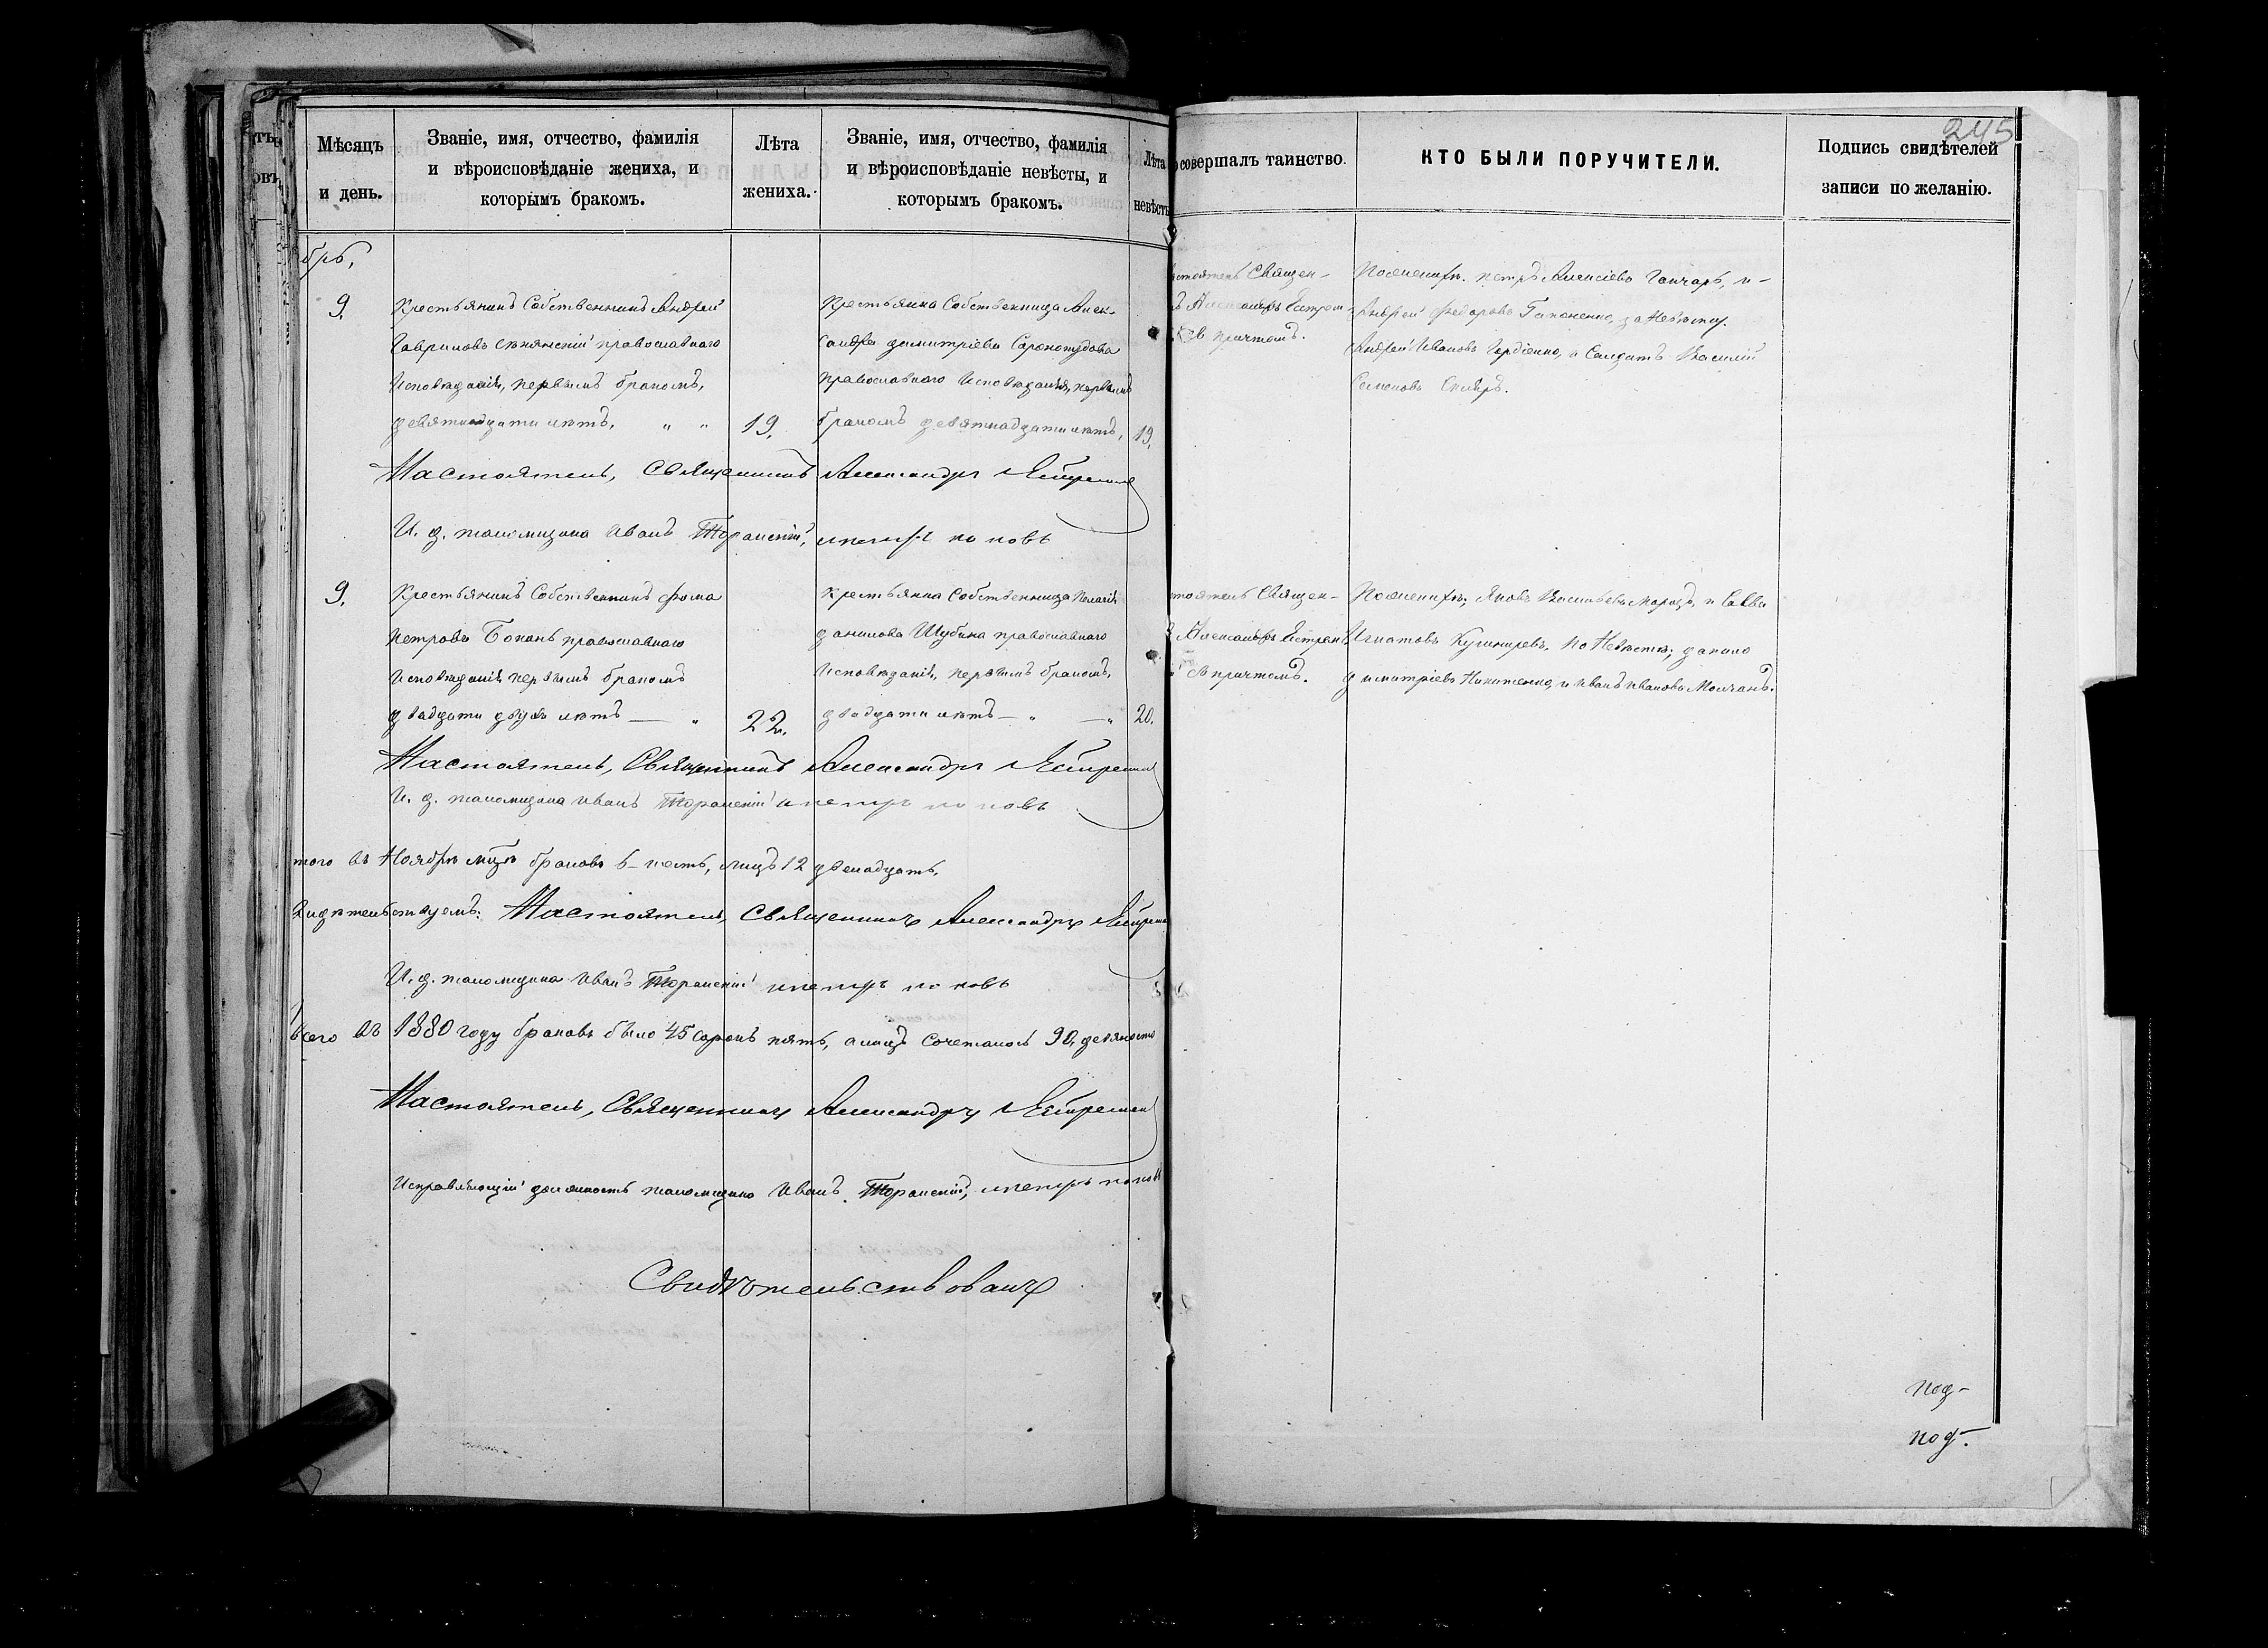 245
Мѣсяцъ и день.
Званіе, имя, отчество, фамилія и вѣроисповѣданіе жениха, и которымъ бракомъ.
Лѣта жениха.
Званіе, имя, отчество, фамилія и вѣроисповѣданіе невѣсты, и которымъ бракомъ.
Лѣта невѣсты
совершалъ таинство.
КТО БЫЛИ ПОРУЧИТЕЛИ.
Подпись свидѣтелей записи по желанію.
брь,
9.
Крестьянинъ Собственникъ Андрей
Гавриловъ православнаго
Исповѣданія, первымъ бракомъ,
девятнадцати лѣтъ, " "
19.
Крестьянка Собственница Алек-
сандра Димитріева
православнаго Исповѣданія, первымъ
бракомъ девятнадцати лѣтъ,
19.
Священ-
Александръ
съ причтомъ.
По женихѣ: Петръ Алексіевъ Гончаръ, и
Андрей Федоровъ Гапоненко, за Невѣсту:
Андрей Ивановъ Гордіенко, и Солдатъ Василій
Семеновъ
Настоятель, Священникъ Александръ
И. д. псаломщика Иванъ
9.
Крестьянинъ Собственникъ Фома
Петровъ православнаго
Исповѣданія первымъ бракомъ
двадцати двухъ лѣтъ — "
22.
Крестьянка Собственница Пелагія
Данилова Шубина православнаго
Исповѣданія, первымъ бракомъ,
двадцати лѣтъ — " — "
20.
Священ-
Александръ
съ причтомъ.
По женихѣ; Яковъ Васильевъ Морозъ, и Савва
Игнатовъ По Невѣстѣ; Данило
Димитріевъ Никитенко, и Иванъ Ивановъ Молчанъ.
Настоятель, Священникъ Александръ
И. д. псаломщика Иванъ
того въ Ноябрѣ м-цѣ браковъ 6 - шесть, лицъ 12 двенадцать.
Настоятель, Священникъ Александръ
И. д. псаломщика Иванъ
Всего въ 1880 году браковъ было 45 сорокъ пять, а лицъ сочеталось 90, девяносто
Настоятель, Священникъ Александръ
Исправляющій должность псаломщика Иванъ
Свидѣтельствовалъ
под-
под-